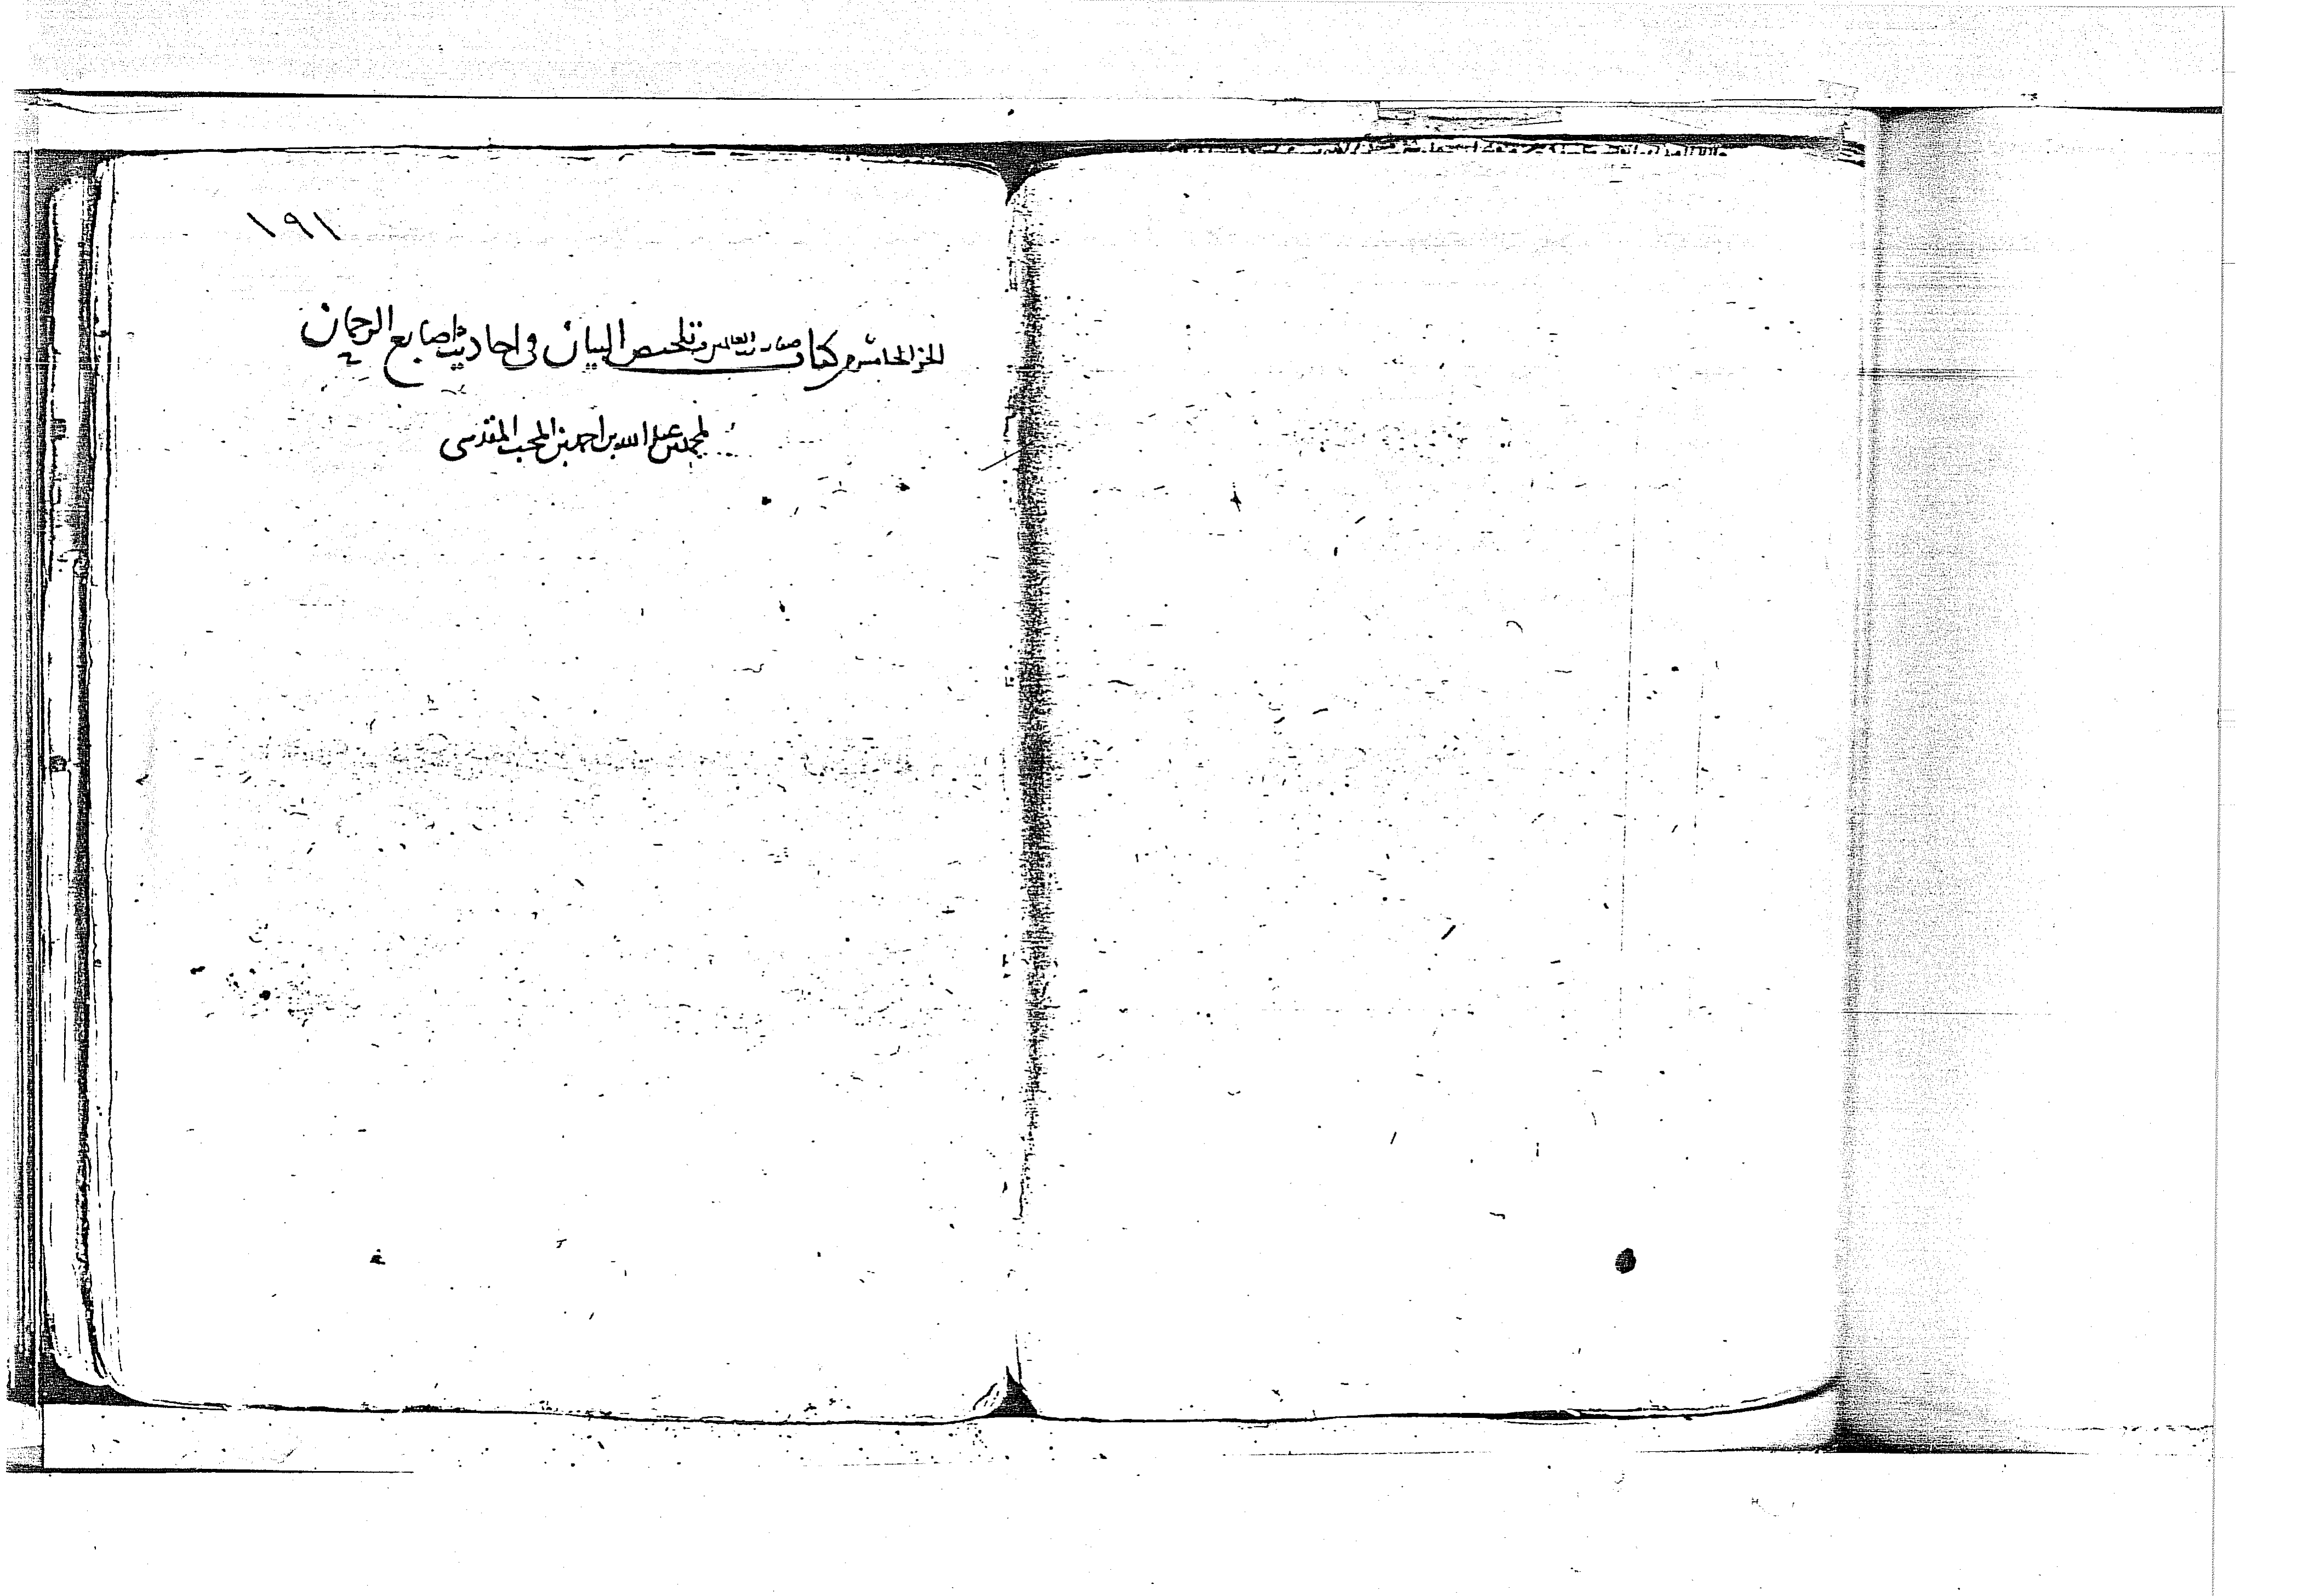 ١٩١
الجزء الخامس من كتاب صفات رب العالمين وتلخيص البيان في احاديث اصابع الرحمان
لمحمد بن عبد الله بن احمد بن المحب المقدسي